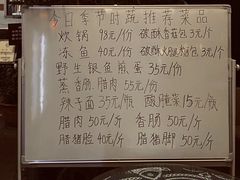 今日季节时蔬推荐菜品
炊锅 98元/份 破酥香菇包3元/个
冻鱼 40元/份 破酥火腿包3元/个
野生银鱼煎蛋 35元/份
蒸香肠.腊肉 55元/份
辣子面35元/瓶 酸腌菜15元/瓶
腊肉 50元/斤 香肠 50元/斤
腊猪脸 40元/斤 腊猪脚 50元/斤